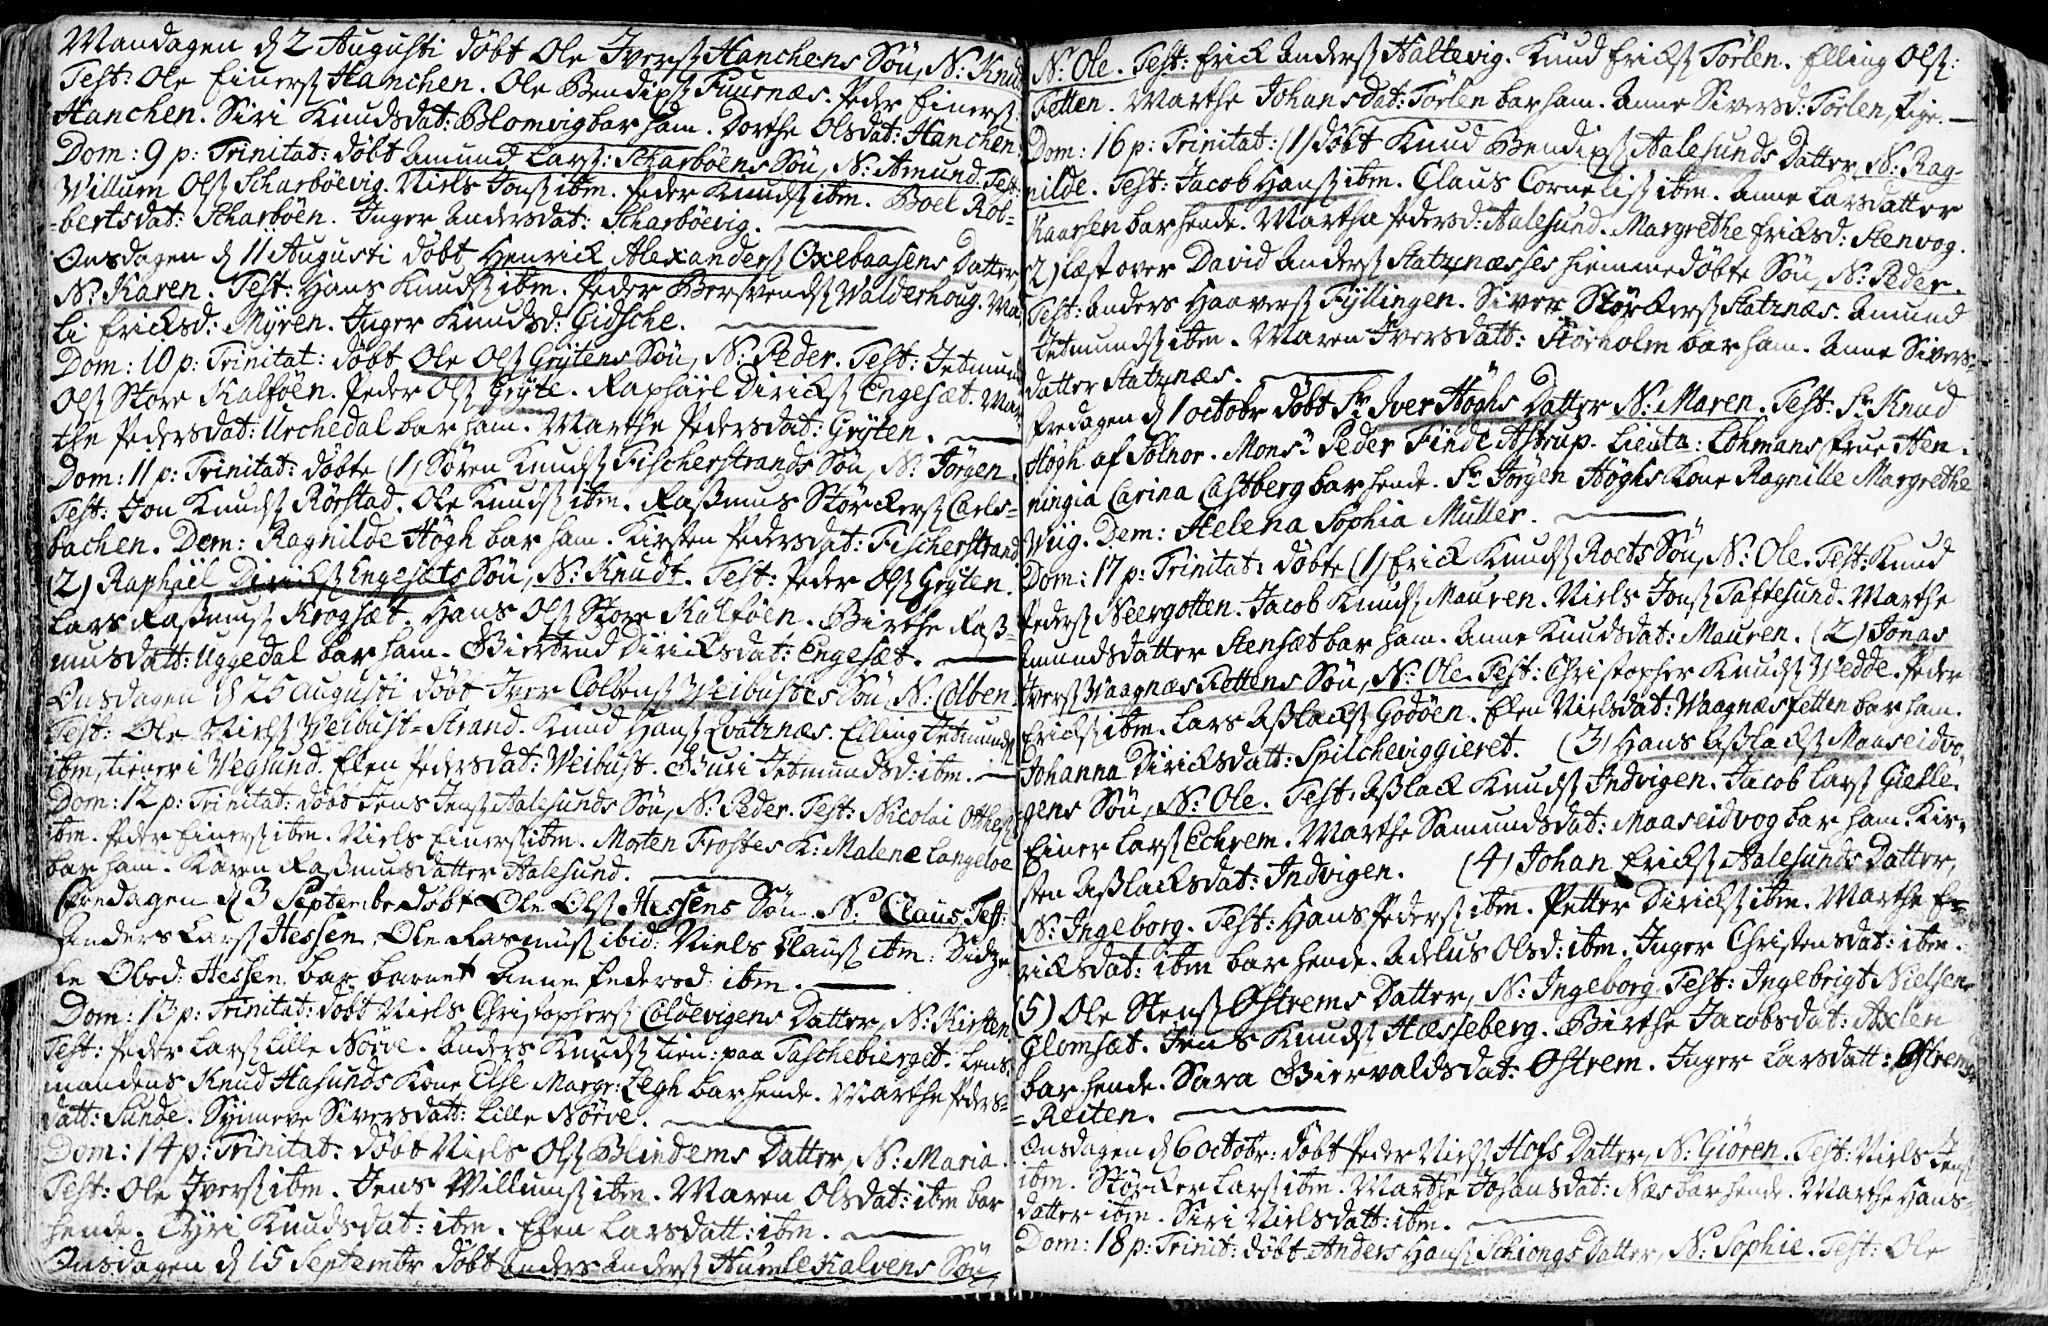 Mandagen d 2 Augusti döbt Ole Iversß Hanchens Sön, N: Knud
Test: Ole Einersß Hanchen. Ole Bendixsß Fuurnæs. Peder Einersß:
Hanchen. Siri Knudsdat: Blomvig bar ham. Dorthe Olsdat: Hanchen.
Dom: 9 p: Trinitat: döbt Amund Larsß: Scharböens Sön, N: Amund. Test:
Willum Olsß Scharböevig. Niels Jonsß ibm. Peder Knudsß ibm. Boel Rob-
=bertsdat: Scharböen. Inger Andersdat: Scharböevig.
Onsdagen d 11 Augusti döbt Henrick Alexandersß Oxebaasens Datter,
N: Karen. Test: Hans Knudsß ibm. Peder Bersvendsß Walderhoug. Ma-
li Ericksd: Myren. Inger Knudsd: Gidsche.
Dom: 10 p: Trinitat: döbt Ole Olsß Grytens Sön, N: Peder. Test: Jetmund
Olsß Store Kalföen. Peder Olsß Gryte. Raphäel Diricksß Engesæt. Mar-
the Pedersdat: Urchedal bar ham. Marthe Pedersdat: Gryten.
Dom: 11 p: Trinitat: döbte (1) Sören Knudsß Fischerstrands Sön, N: Jörgen.
Test: Jon Knudsß Rörstad. Ole Knudsß ibm. Raßmus Störckersß Carls-
bachen. Dem: Ragnilde Högh bar ham. Kirsten Pedersdat: Fischerstrand.
(2) Raphäel Diricksß Engesæts Sön, N: Knudt. Test: Peder Olsß Gryten.
Lars Raßmusß Krogsæt. Hans Olsß Store Kalföen. Birthe Raß-
musdatt: Uggedal bar ham. Giertrud Diricksdat: Engesæt.
Onsdagen d 25 augusti döbt Iver Colbensß Weibustes Sön, N: Colben
Test: Ole Nielsß Weibust-Strand. Knud Hansß Qvatznæs. Elling Jetmundsß
ibm, tiener i Vegsund. Elen Pedersdat: Weibust. Guri Jetmundsd: ibm.
Dom: 12 p: Trinitat: döbt Jens Jensß Aalesunds Sön, N: Peder. Test: Nicolai Otthesß
ibm. Peder Einersß ibm. Niels Einersß ibm. Morten Frostes K: Malene Langeloe
bar ham. Karen Raßmusdatter Aalesund.
Fredagen d 3 September döbt Ole Olsß Hessens Sön N: Claus Test:
Anders Larsß Hessen. Ole Rasmusß ibid: Niels Clausß ibm:
Olsd: Hessen bar barnet Anne Pedersd: ibm.
Dom: 13 p: Trinitat: döbt Niels Christophersß Coldevigens Datter, N: Kirsten
Test: Peder Larsß Lille Nörve. Anders Knudsß tien: paa Taschebierget. Lens-
mandens Knud Hasunds Kone Else Margr: Legh bar hende. Marthe Peders-
datt: Sunde. Synneve Siversdatt: Lille Nörve.
Dom: 14 p: Trinitat: döbt Niels Olsß Blindems Datter, N: Maria.
Test: Ole Iversß ibm. Jens Willumsß ibm. Maren Olsdat: ibm bar
hende. Gyri Knudsdat: ibm. Elen Larsdatt: ibm.
Onsdagen d 15 Septembr döbt Anders Andersß HumleKalvens Sön
N: Ole. Test: Erick Andersß Haltevig. Knud Ericksß Törlen. Elling Olsß:
Fetten. Marthe Johansdat: Törlen bar ham. Anne Siversd: Törlen, Pige.
Dom: 16 p: Trinitat: (1) döbt Knud Bendixsß Aalesunds Datter, N: Rag-
nilde. Test: Jacob Hansß ibm. Claus Cornelisß ibm. Anne Larsdatter
Kaarsen bar hende. Martha Pedersd: Aalesund. Margrethe Ericksd: Stenvog.
2) læst over David Andersß Slatznæsses hiemmedöbte Sön, N: Peder.
Test: Anders Haaversß Fyllingen. Siver Störckersß Slatznæs. Amund
Jetmundsß ibm. Maren Iversdatt: Storholm bar ham. Anne Sivers-
datter Slatznæs.
Fredagen d 1 octobr döbt Hr Iver Höghs Datter N: Maren. Test: Hr Knud
Högh af Solnor. Monsr Peder Finde Astrup. Lieuta: Lohmans Frue Hen-
ningia Carina Castberg bar hende. Hr Jörgen Höghs Kone Ragnille Margrethe
Wiig. Dem: Helena Sophia Müller.
Dom: 17 p: Trinitat: döbte (1) Erick Knudsß Roets Sön, N: Ole. Test: Knud
Pedersß Neergotten. Jacob Knudsß Mauren. Niels Jonsß Taftesund. Marthe
Amundsdatter Stensæt bar ham. Anne Knudsdat: Mauren. (2) Jonas
Iversß Waagnæs Fettens Sön, N: Ole. Test: Christopher Knudsß Vedde. Peder
Ericksß ibm. Lars Aßlacksß Godöen. Elen Nielsdat: Waagnæsfetten bar ham.
Johanna Diricksdatt: Spilcheviggieret. (3) Hans Aßlacksß Maaseidvo-
gens Sön, N: Ole. Test: Aßlack Knudsß Indvigen. Jacob Larsß Gielle.
Einer Larsß Echrem. Marthe Samundsdat: Maaseidvog bar ham. Kir-
sten Aßlacksdat: Indvigen. (4) Johan Ericksß Aalesunds Datter,
N: Ingeborg. Test: Hans Pedersß ibm. Petter Diricksß ibm. Marthe E-
ricksdat: ibm bar hende. Adelus Olsd: ibm. Inger Christensdat: ibm.
(5) Ole Stensß Östrems Datter, N: Ingeborg Test: Ingebrigt Nielsen
Glomsæt. Jens Knudsß Hæsseberg. Birthe Jacobsdat: Axlen
bar hende. Sara Giervaldsdat: Östrem. Inger Larsdatt: Östrems
=Reiten.
Onsdagen d 6 octobr: döbt Peder Nielsß Hofs Datter, N: Giören. Test: Niels Jensß
ibm. Störcker Larsß ibm. Marthe Johansdat: Næs bar hende. Marthe Hans-
datter ibm. Siri Nielsdatt: ibm.
Dom: 18 p: Trinit: döbt Anders Hansß Schiongs Datter, N: Sophie. Test: Ole